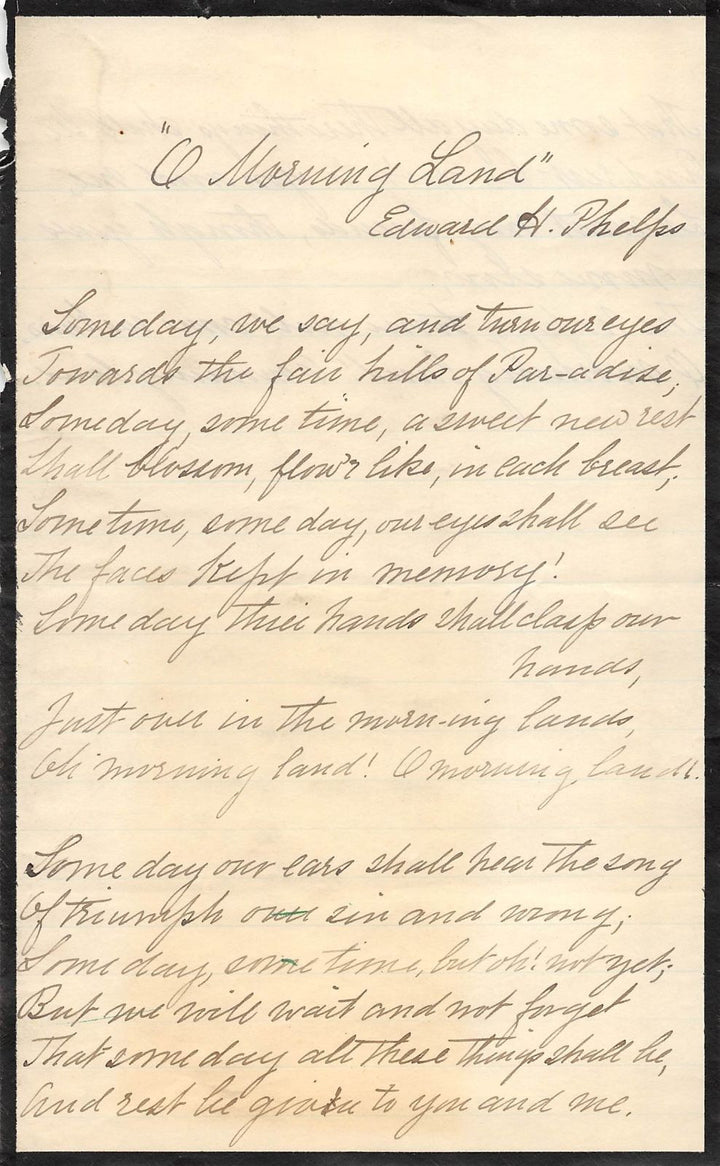 "O Morning Land"
Edward H. Phelps
Some day, we say, and turn our eyes
Towards the fair hills of Par-adise,
Some day, some time, a sweet new rest
Shall blossom, flow'r like, in each breast;
Some time, some day, our eyes shall see
The faces kept in memory!
Some day their hands shall clasp our
hands,
Just over in the morn-ing lands,
Oh morning land! O morning land!
Some day our ears shall hear the song
Of triumph over sin and wrong;
Some day, some time, but oh! not yet;
But we will wait and not forget
That some day all these things shall be,
And rest be given to you and me.